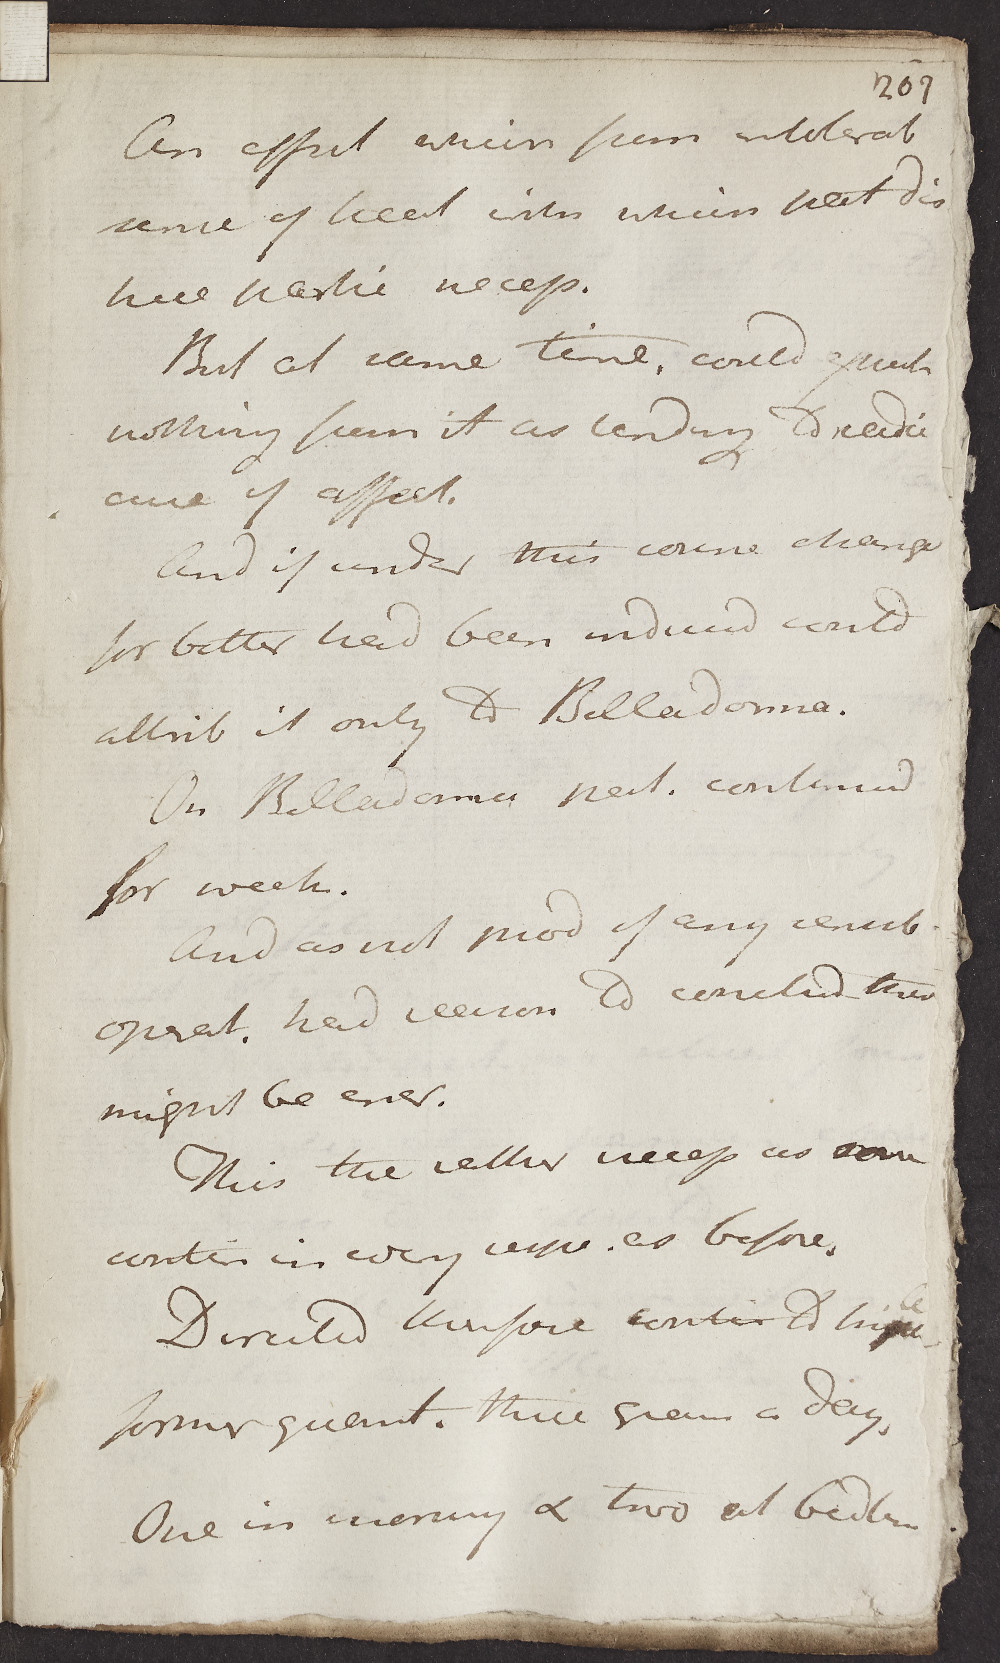 209
An effect which from intolerab
sense of heat with which pat dis
here partic necess.
But at same time, could expect
nothing from it as tending to radic
cure of affect.
And if under this course change
for better had been induced could
attrib it only to Belladonna.
On Belladonna pat. continued
for week.
And as not prod of any sensib.
operat. had reason to conclud this
might be
This the rather necess as
contin in every respe. as before.
Directed therefore contin to
former quant. three grain a day.
One in morning & two at bedtim